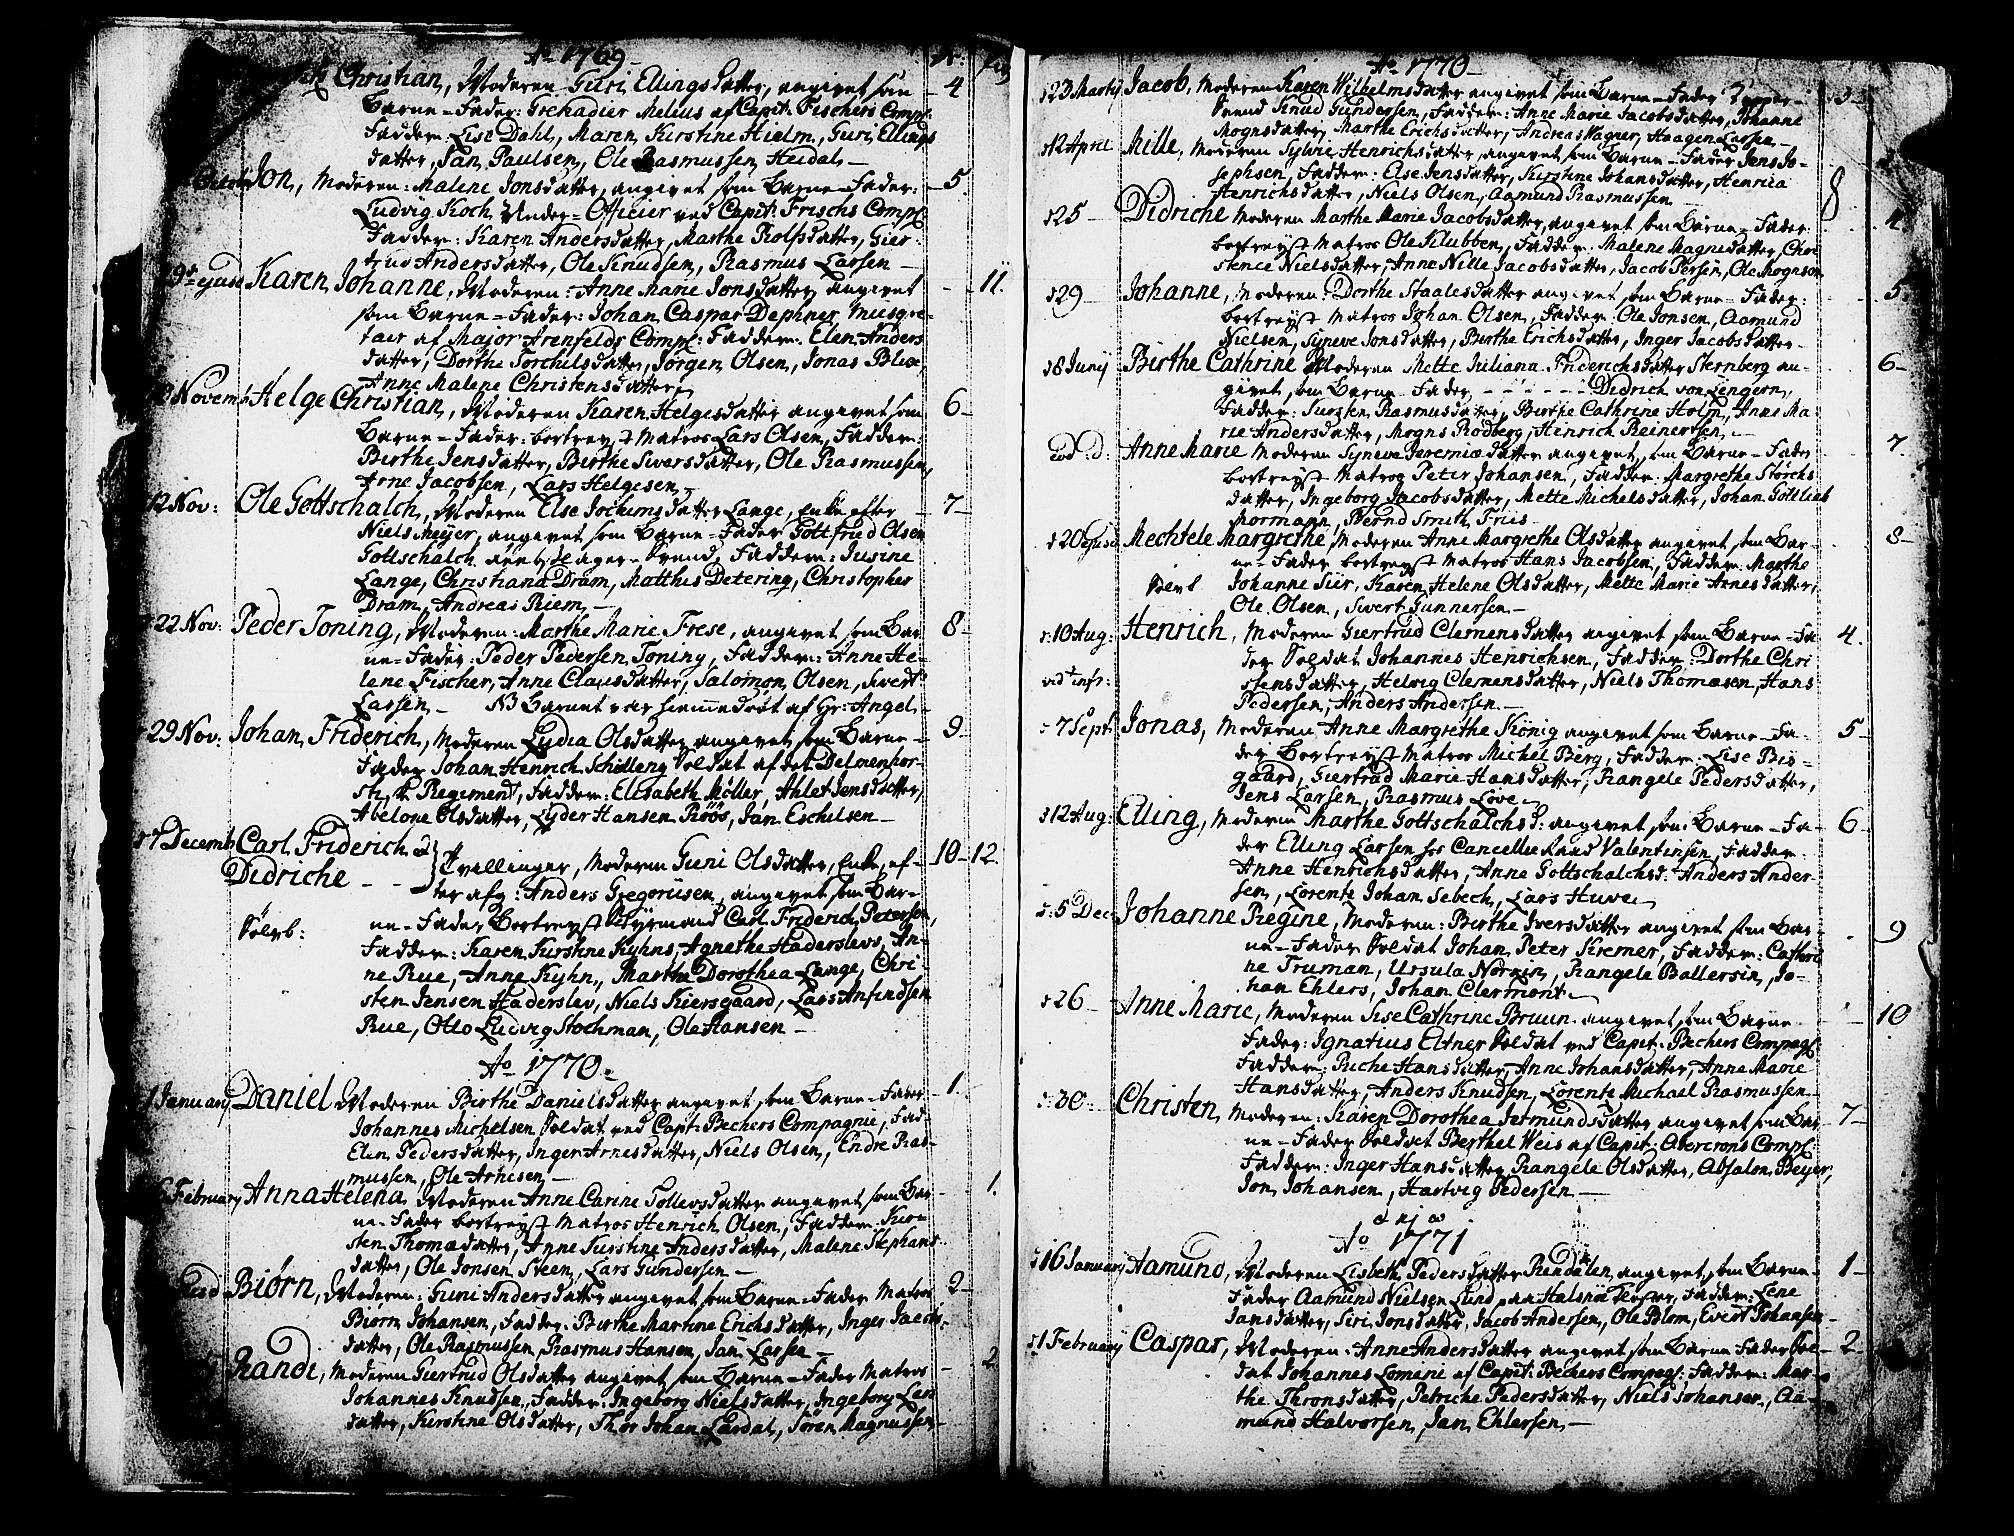 Ao 1769
Christian, Moderen Guri Ellings datter, angivet som 4
Barne-Fader: Grenadier Melius af Capit: Fischers Comp:
Faddere: Lise Dahl, Maren Kirstine Hielm, Guri Ellings
datter, Jan Paulsen, Ole Rasmussen Heidal
Octobr Jon, Moderen: Malene Jonsdatter, angivet som Barne-Fader: 5
Ludvig Koch, Under-Officier ved Capit: Frischs Comp:
Fadder: Karen Andersdatter, Marthe Rolfsdatter, Gier-
trud Andersdatter, Ole Knudsen, Rasmus Larsen
ejusd Karen Johanne, Moderen: Anne Marie Jonsdatter, angivet 11.
som Barne-Fader: Johan Caspar Dephner, Musqve-
taer af Major Arenfeldts Comp: Fadder: Elen Anders
datter, Dorthe Torchelsdatter, Jørgen Olsen, Jonas Blix,
Anne Malene Christensdatter
Novemb Helge Christian, Moderen Karen Helgesdatter angivet som 6
Barne-Fader: bortreyst Matros Lars Olsen, Fadder:
Birthe Jensdatter, Birthe Siversdatter, Ole Rasmussen,
Arne Jacobsen, Lars Helgesen
12 Nov: Ole Gottschalch, Moderen Else Jochums datter Lange, Enke efter 7
Niels Meyer, angivet som Barne-Fader Gottfried Olsen
Gottschalch Faddere: Jusine
Lange, Christiana Dram, Matthis Detering, Christopher
Dram, Andreas Riem
22 Nov: Peder Toning, Moderen: Marthe Marie Frese, angivet som Bar 8
ne-Fader: Peder Pedersen Toning, Fadder: Anne He-
lene Fischer, Anne Clausdatter, Salomon Olsen, Sivert
Larsen NB Barnet var hiemmedøbt af Hr: Angel
29 Nov: Johan Friderich, Moderen Lydia Olsdatter angivet som Barne 9
Fader Johan Henrich Schilleng Soldat af det Delmenhor-
st: Regiment, Fadder: Elisabeth Møller, Ahlet Jensdatter,
Abelone Olsdatter, Lyder Hansen Röös, Jan Eschilsen
7 Decemb Carl Friderich &
Didriche Tvillinger, Moderen Guni Olsdatter, Enke ef- 10 12
ter afg: Anders Gregoriisen, angivet som Bar-
ne-Fader Bortreyst Styrmand Carl Friderich Petersen,
Fadder: Karen Kirstine Kyhns, Agnethe Haderslevs, An-
ne Rue, Anne Kyhn, Marthe Dorothea Lange, Chri-
sten Jensen Haderslev, Niels Kiersgaard, Lars Anfindsen
Rue, Otto Ludvig Stochman, Ole Hansen
Ao 1770
1 January Daniel Moderen Birthe Daniels datter angivet som Barne-Fader 1.
Johannes Michelsen Soldat ved Capt: Bechers Compagnie, Fad
Elen Pedersdatter, Inger Arnesdatter, Niels Olsen, Endre Ras-
mussen, Ole Arnesen
February Anna Helena, Moderen Anne Carine Tollevsdatter angivet som Bar 1.
ne-Fader bortreyst Matros Henrich Olsen, Fadder: Kir-
sten Thomædatter, Anne Kirstine Andersdatter, Malene Stephans
datter, Ole Jonsen Steen, Lars Gundersen
Biørn, Moderen: Guni Anders datter angivet som Barne-Fader Matros 2
Biørn Johansen, Fadder: Birthe Martine Erichsdatter, Inger Jacobs
datter, Ole Rasmussen, Rasmus Hansen, Jan Larsen
Randi, Moderen Giertrud Olsdatter angivet som Barne-Fader Matros 2
Johannes Knudsen, Fadder: Ingeborg Nielsdatter, Ingeborg Lars
datter, Kirstine Olsdatter, Thor Johan Lærdal, Søren Magnussen
Ao 1770
23 Martij Jacob, Moderen Karen Wilhelmsdatter angivet som Barne-Fader 3
Svend Knud Gundersen, Fadder: Anne Marie Jacobsdatter, Johanne
Mognsdatter, Marthe Erichsdatter, Andreas Wagner, Haagen Larsen
12 April Mille, Moderen Sylvie Henrichsdatter, angivet som Barne-Fader Jens Jo-
sephsen, Fadder: Else Jensdatter, Kirstine Johansdatter, Henrica
Henrichsdatter, Niels Olsen, Aamund Rasmussen 8
25 Didriche Moderen Marthe Marie Jacobsdatter, angivet som Barne-Fader 4
bortreyst Matros Ole Klubben, Fadder: Malene Magnidatter, Chri-
stence Nielsdatter, Anne Nille Jacobsdatter, Jacob Persen, Ole Mognsen
29 Johanne, Moderen: Dorthe Staalesdatter angivet som Barne-Fader: 5
bortreyst Matros Johan Olsen, Fadder: Ole Jonsen, Aamund
Nielsen, Syneve Jonsdatter, Birthe Erichsdatter, Inger Jacobsdatter
8 Junij Birthe Cathrine Moderen Mette Juliana Friderichsdatter Sternberg an- 6
givet som Barne-Fader Didrich von Lengern,
Fadder: Rasmusdatter, Birthe Cathrine Holm, Anne Ma-
rie Andersdatter, Mogns Rødberg, Henrich Reinertsen
eod: d: Anne Marie Moderen Syneve Jeremiædatter angivet som Barne-Fader 7
bortreyst Matros Peter Johansen, Fadder: Margrethe Størchs
datter, Ingeborg Jacobsdatter, Mette Michelsdatter, Johan Gottlieb
Mormann, Bernd Smith Friis
20 ejusd Mechtele Margrethe, Moderen Anne Margrethe Olsdatter angivet som Bar- 8
ne-Fader bortreyst Matros Hans Jacobsen, Fadder: Marthe
Johanne Siur, Karen Helene Olsdatter, Mette Marie Arnesdatter,
Ole Olsen, Sivert Gunnersen
10 Aug: Henrich, Moderen Giertrud Clemensdatter angivet som Barne-Fa 4.
der Soldat Johannes Henrichsen, Fadder: Dorthe Chri
stensdatter, Helvig Clemensdatter, Niels Thomæsen, Hans
Pedersen, Anders Andersen
7 Sept: Jonas, Moderen Anne Margrethe König angivet som Barne-Fa- 5
der Bortreyst Matros Michel Berg, Fadder: Lise Bis-
gaard, Giertrud Marie Hansdatter, Rangele Pedersdatter,
Jens Larsen, Rasmus Løve
12 Aug: Elling, Moderen Marthe Gottschalchs D: angivet som Barne-Fa- 6
der Elling Larsen hos Cancellie Raad Valentinsen, Fadder:
Anne Henrichsdatter, Anne Gottschalchsd: Anders Ander-
sen, Lorents Johan Sebech, Lars Huve
5 Dec: Johanne Regine, Moderen: Birthe Iversdatter angivet som Bar 9
ne-Fader Soldat Johan Peter Kremer, Fadder: Cathri
ne Truman, Ursula Norren, Rangele Ballersin, Jo-
han Ehlers, Johan Clermont
26 Anne Marie, Moderen Sise Cathrine Bruun angivet som Barne 10
Fader: Ignatius Eltner Soldat ved Capit: Bechers Compagn:
Fadder: Riche Hansdatter, Anne Johansdatter, Anne Marie
Hansdatter, Anders Knudsen, Lorents Michael Rasmussen
30 Christen, Moderen: Karen Dorothea Jermundsdatter angivet som Bar 7
ne-Fader Soldat Berthel Weis af Capit: Abercrons Comp:
Fadder: Inger Hansdatter, Rangele Olsdatter, Absalon Beyer,
Jon Johansen, Hartvig Pedersen
Ao 1771
16 January Aamund, Moderen Lisbeth Pedersdatter Rendalen, angivet som Barne 1
Fader Aamund Nielsen Lund paa Halsnøe Closter, Fadder: Lene
Jansdatter, Siri Jonsdatter, Jacob Andersen, Ole Blom, Evert Johansen
1 February Caspar, Moderen: Anne Andersdatter angivet som Barne Fader Sol 2
dat Johannes Lomini af Capit: Bechers Compagn: Fadder: Mar-
the Thronsdatter, Petriche Pedersdatter, Niels Johansen, Aa-
mund Halvorsen, Jan Ehlersen